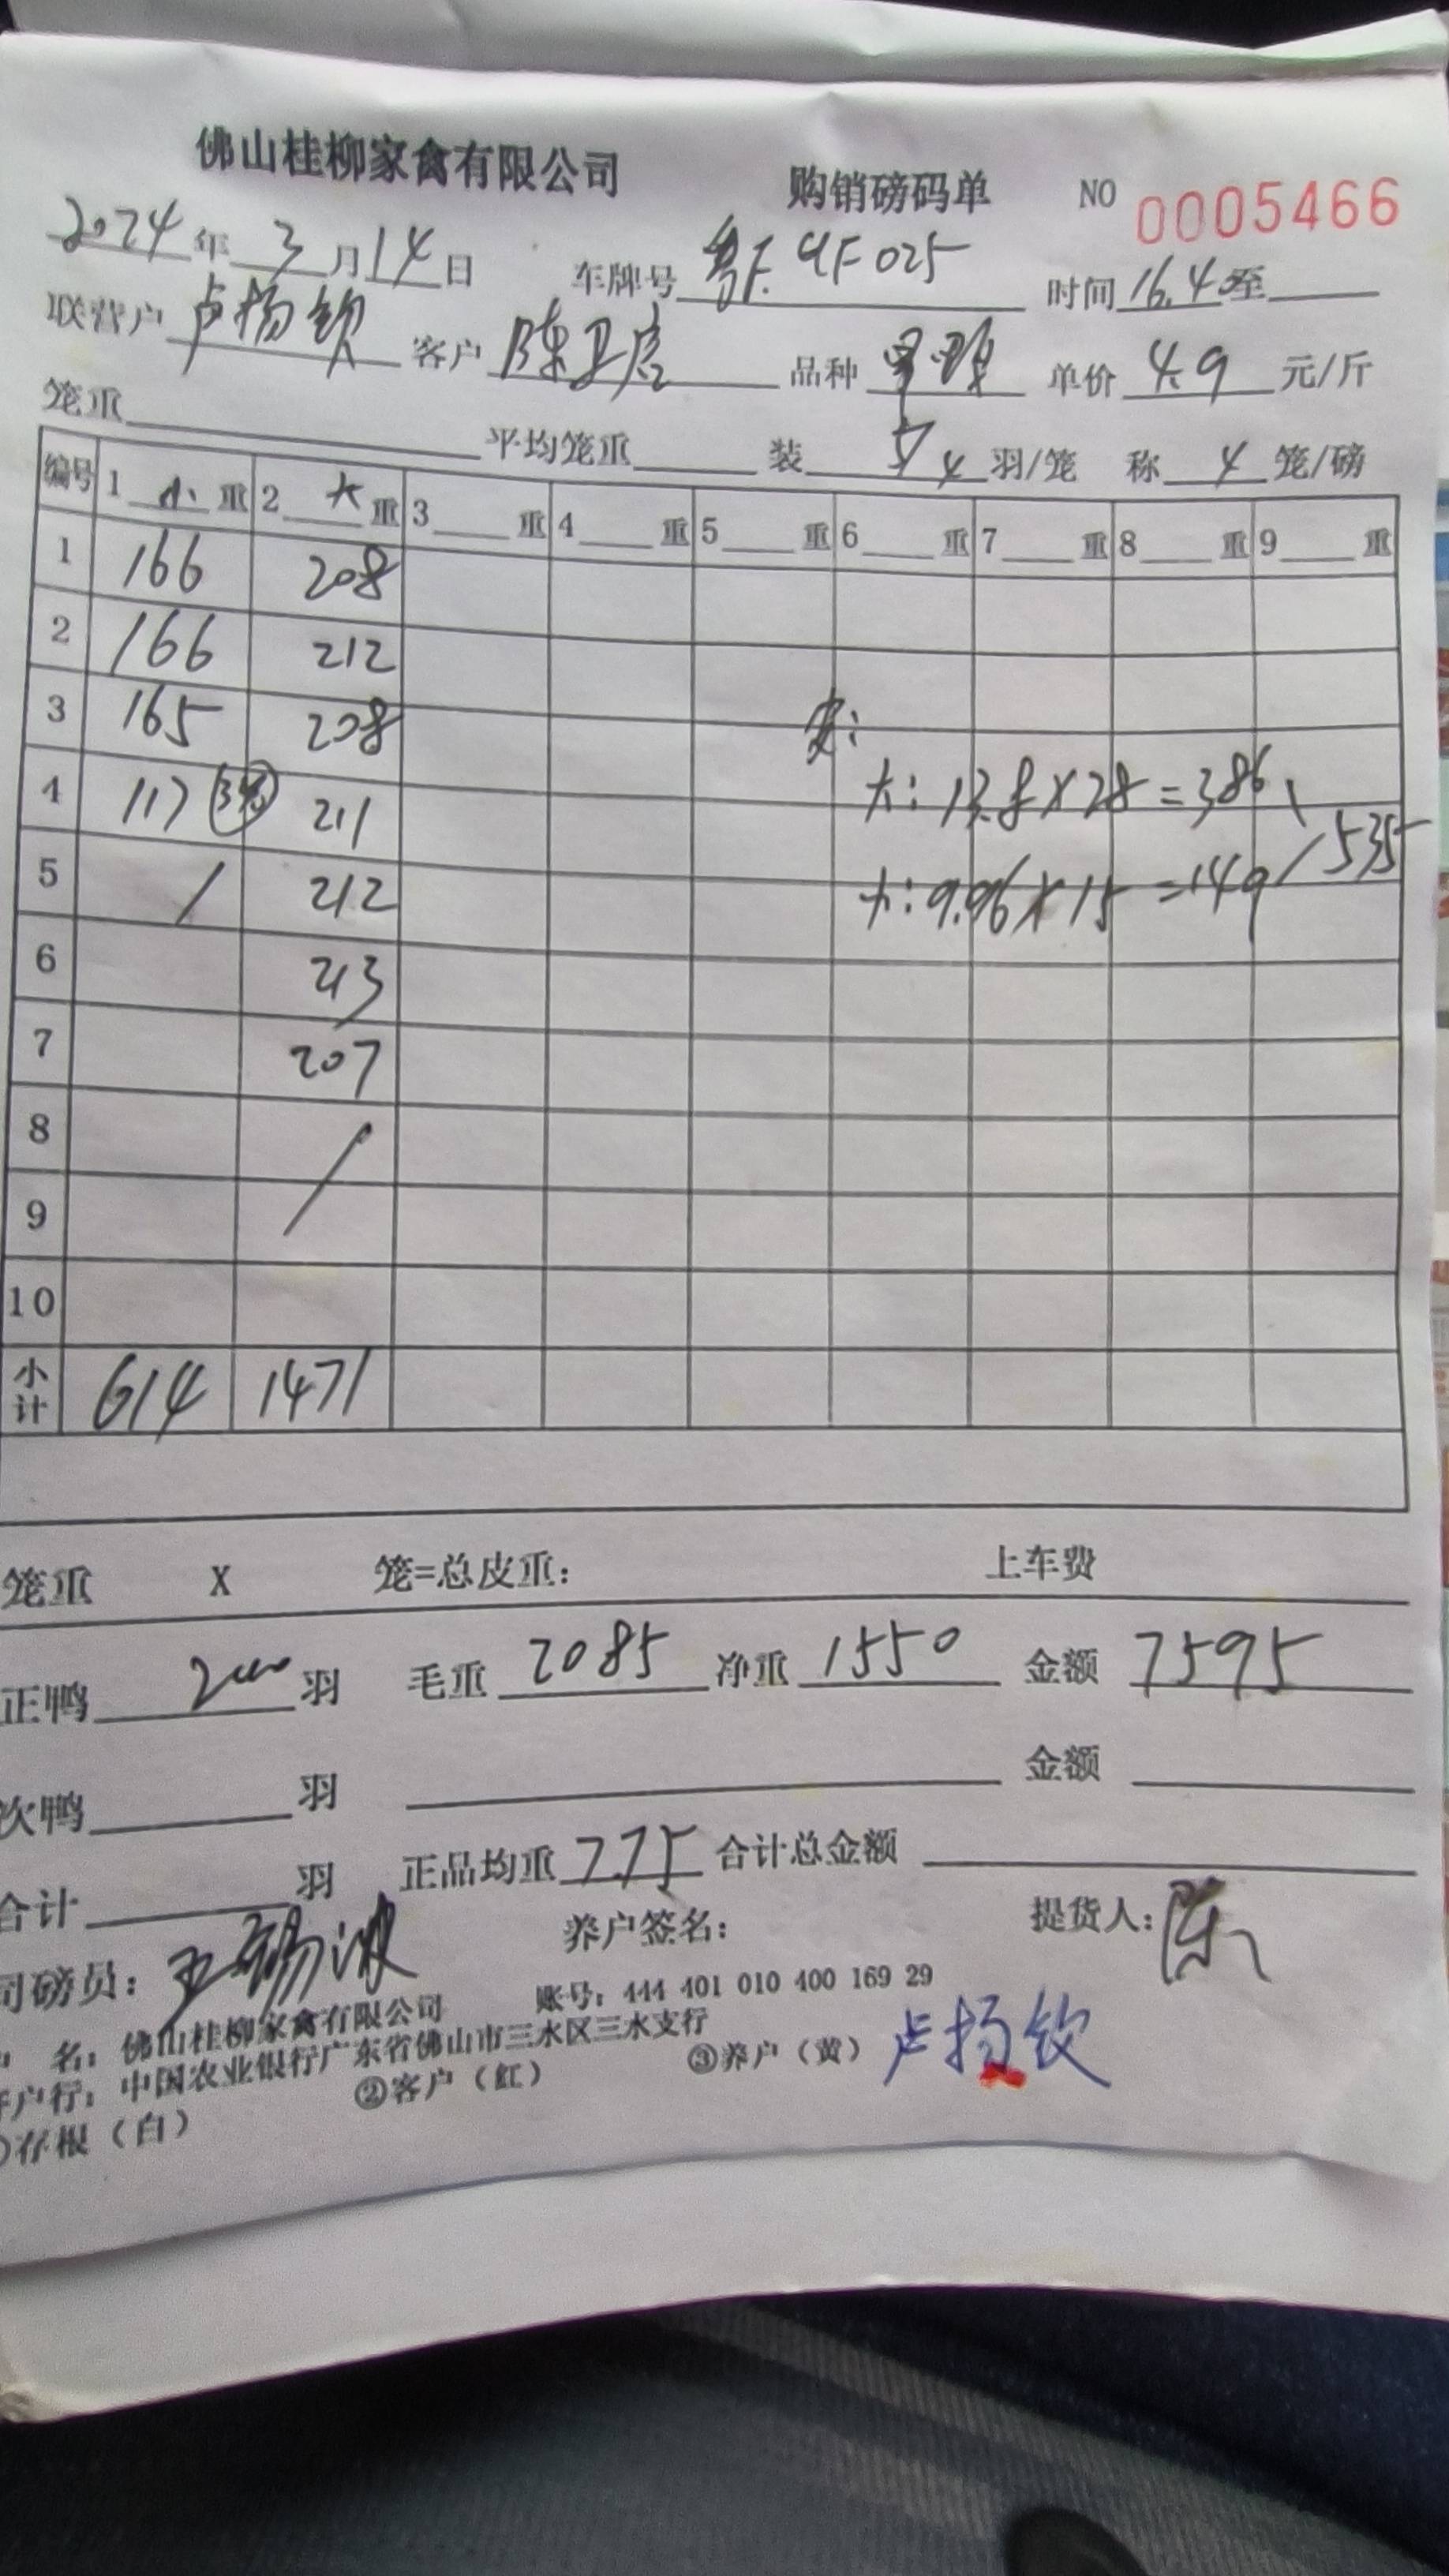 佛山桂柳家禽有限公司 购销磅码单 NO 0005466
2024年 3 月 14 日 车牌号 025 时间 16.40至
联营户 卢扬钦 客户 陈卫 品种 单价 4.9 元/斤
笼重 平均笼重 装 4 羽/笼 称 4 笼/磅
编号 1 小 重 2 大 重 3 重 4 重 5 重 6 重 7 重 8 重 9 重
1 166 208
2 166 212
3 165 208
4 117 211
大: 13.8×28=386
5 / 212
大: 9.96×15=149 535
6 213
7 207
8 /
9
10
小计 614 1471
笼重 X 笼=总皮重: 上车费
正鸭 羽 毛重 2085 净重 1550 金额 7595
次鸭 羽 金额
合计 羽 正品均重 7.75 合计总金额
司磅员: 王锡波 养户签名: 提货人: 陈
名: 佛山桂柳家禽有限公司 账号: 444 401 010 400 169 29
开户行: 中国农业银行广东省佛山市三水区三水支行
存根(白) ②客户(红) ③养户(黄) 卢扬钦